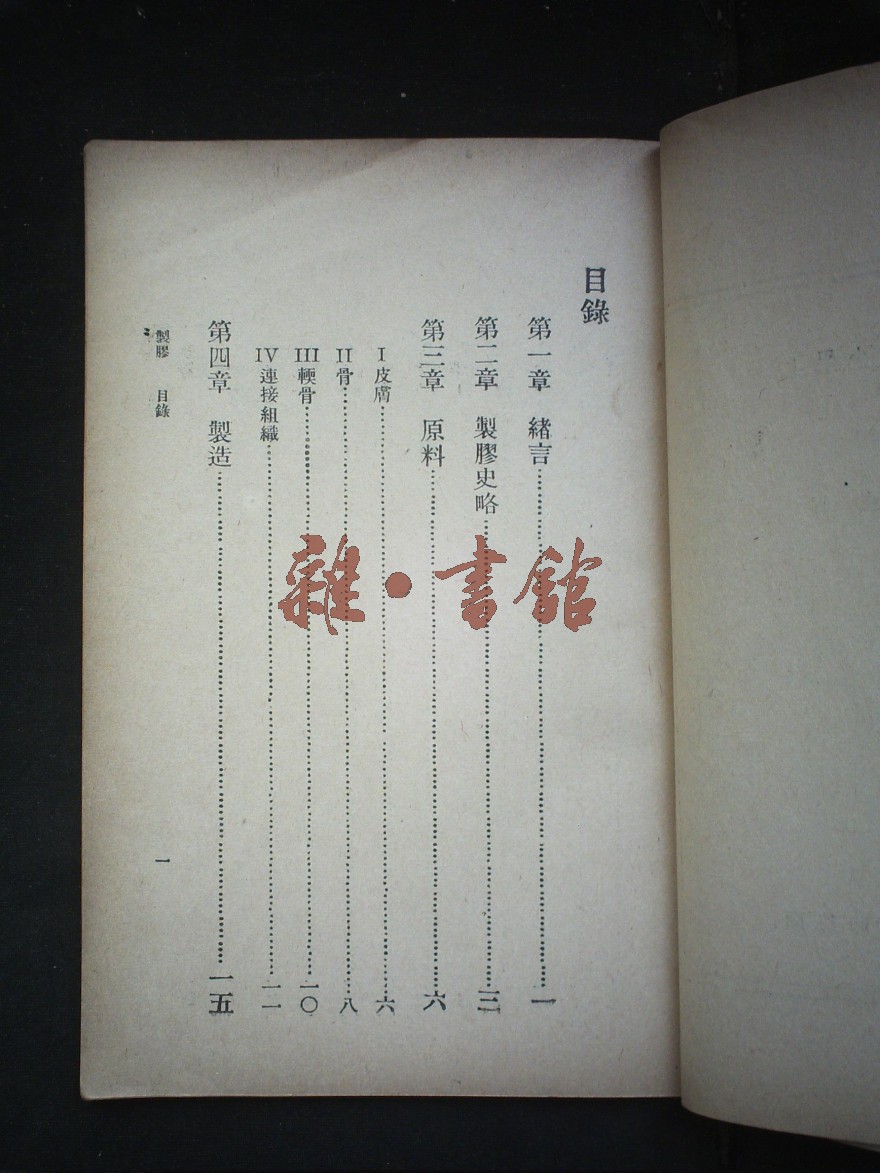 目錄
第一章 緒言……一
第二章 製膠史略……三
第三章 原料……六
I 皮膚……六
II 骨……八
III 輭骨……一〇
IV 連接組織……一一
第四章 製造……一五
製膠 目錄 一
雜·書館